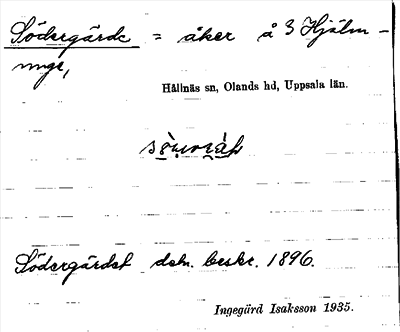 Södergärde = åker å 3 Hjälm-
unge,
Hållnäs sn, Olands hd, Uppsala län.
Södergärdet dsn. beskr. 1896.
Ingegärd Isaksson 1935.